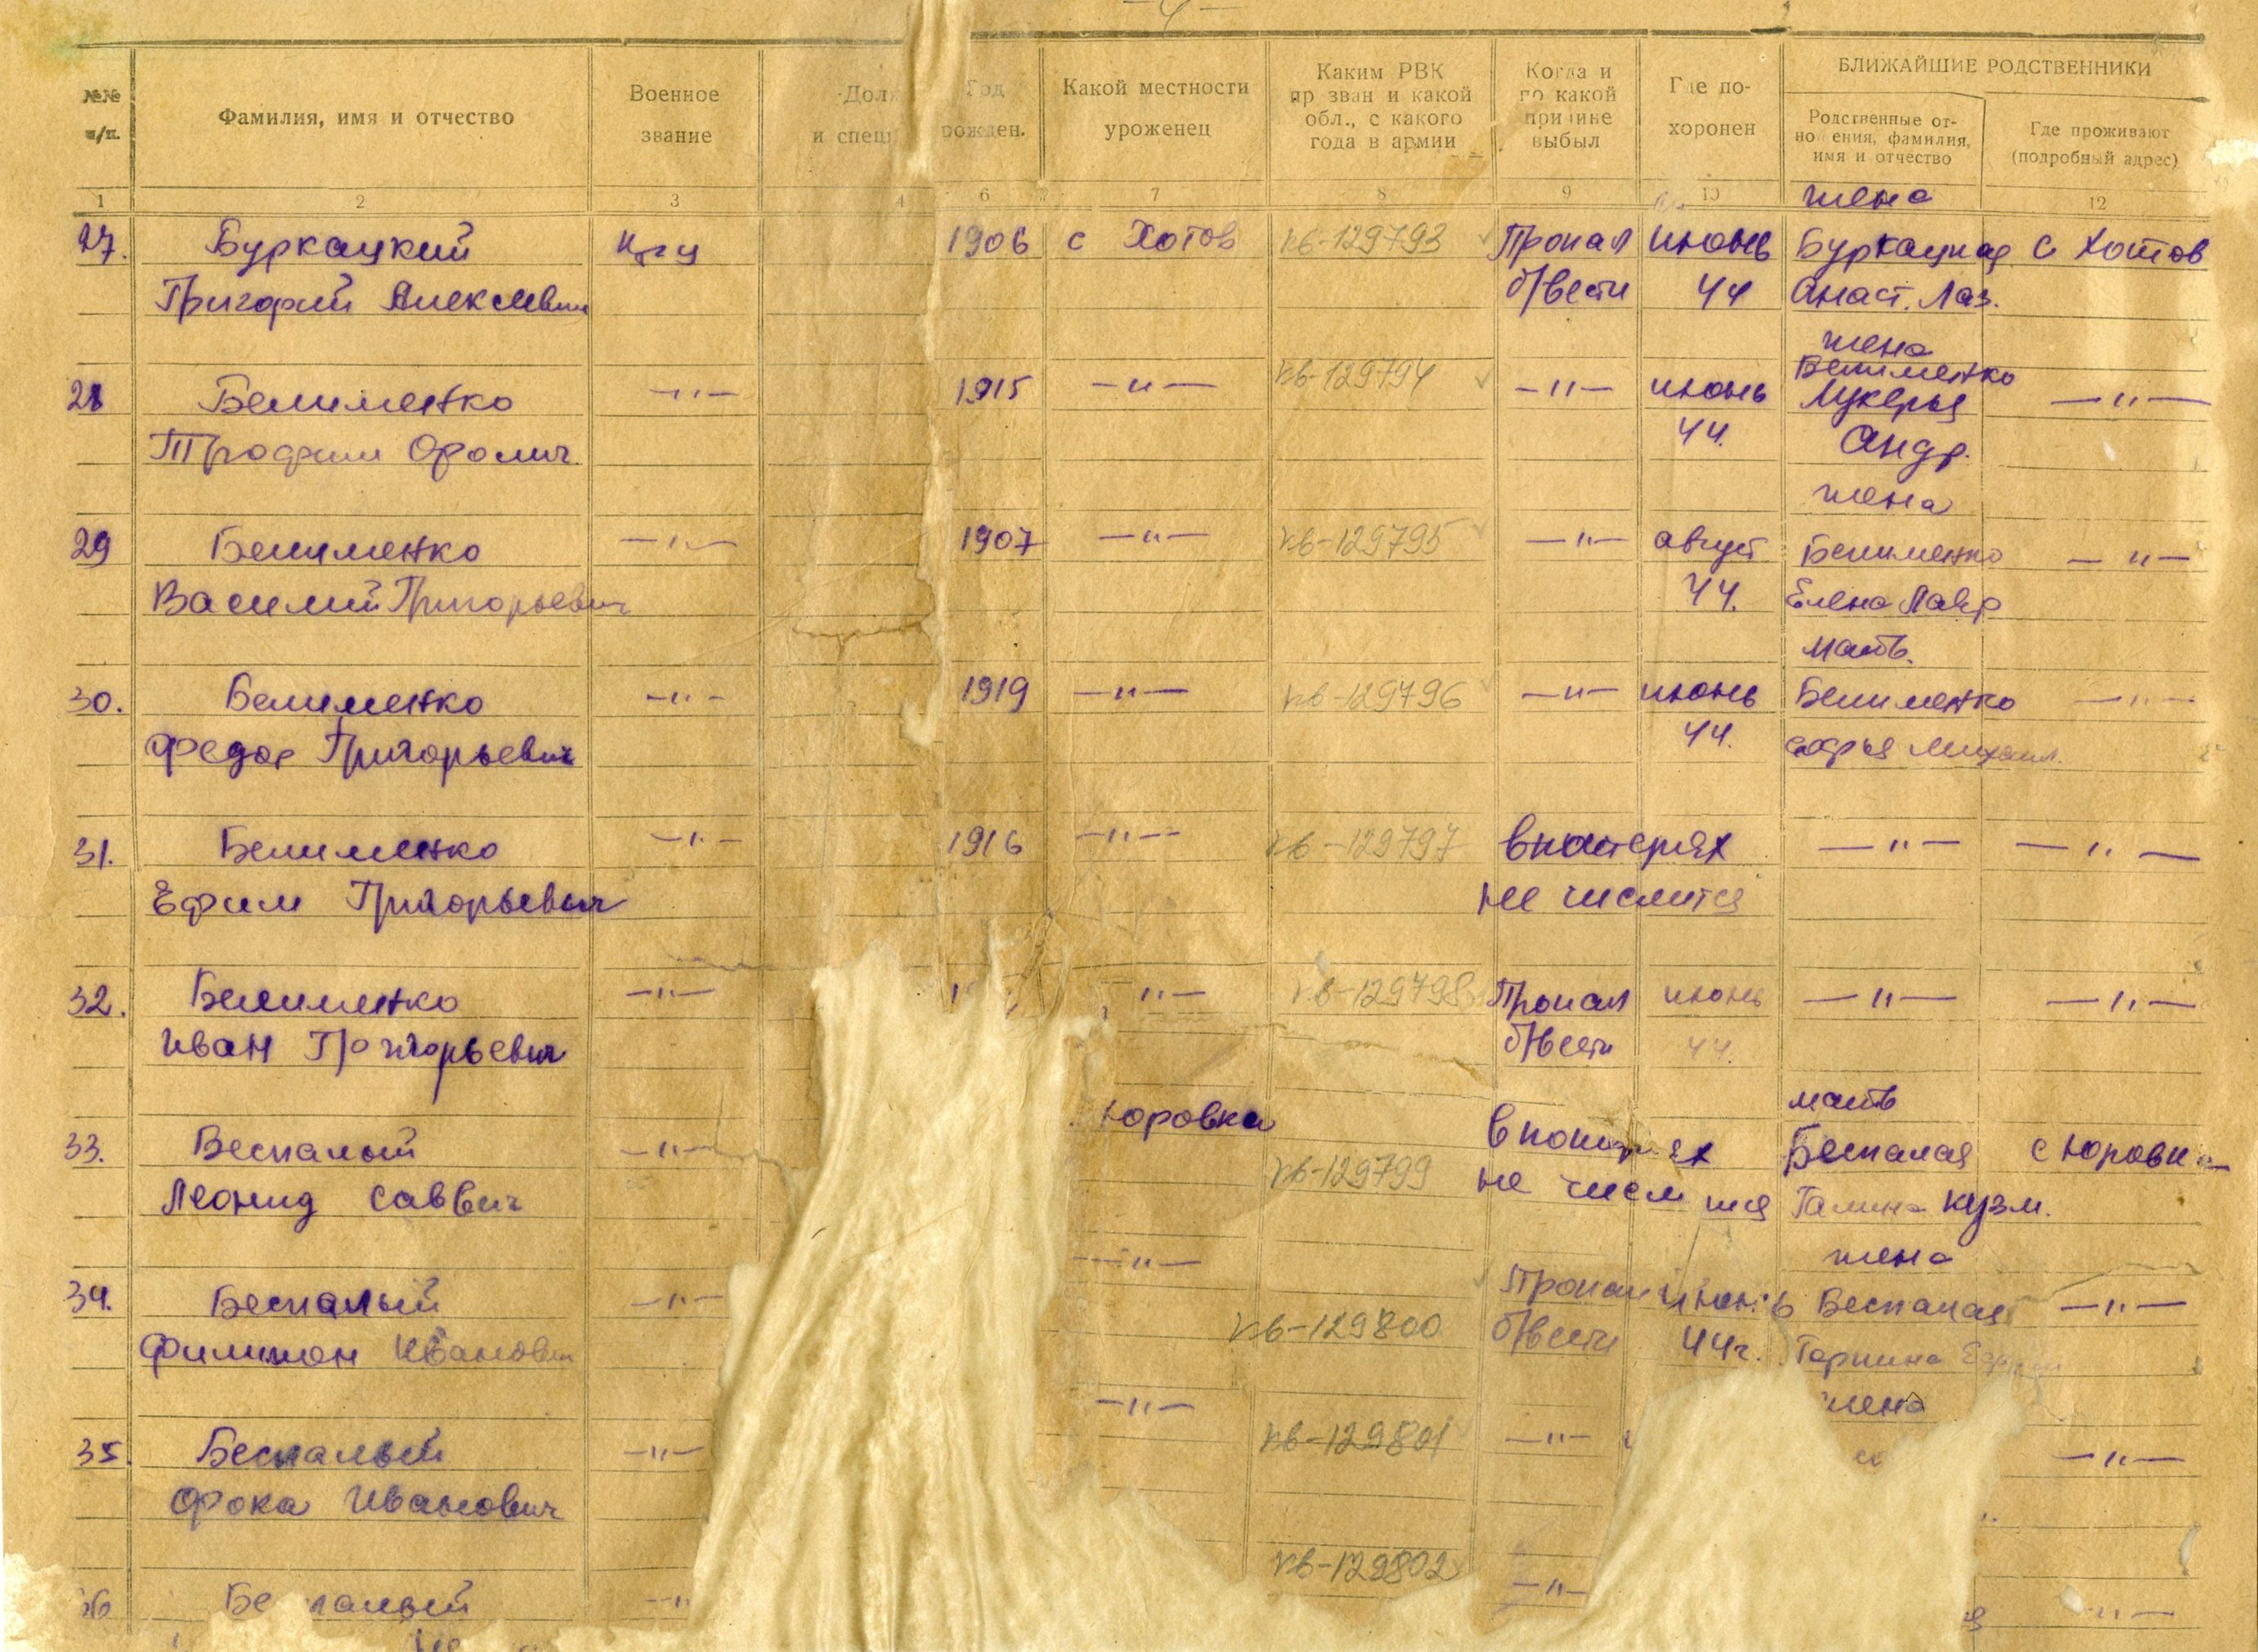 — 4 —
БЛИЖАЙШИЕ РОДСТВЕННИКИ
№№ п/п.
Фамилия, имя и отчество
Военное звание
Дол
и спец
Год рожден.
Какой местности уроженец
Каким РВК
пр зван и какой
обл., с какого
года в армии
Когда и
по какой
причине
выбыл
Где по-
хоронен
Родственные от-
но ения, фамилия,
имя и отчество
Где проживают
(подробный адрес)
1 2 3 4 6 7 8 9 10 12
жена
27. Буркацкий 1906 с Хотов кв-129793 Пропал июнь Буркацкая с Хотов
Григорий Алексеевич б/вести 44 Анаст. Лаз.
жена
Велименко
28 Белименко —"— 1915 —"— кв-129794 —"— июнь Лукерья —"—
Трофим 44. Андр.
жена
29 Белименко —"— 1907 —"— кв-129795 —"— август Белименко —"—
Василий Григорьевич 44. Елена Лавр
мать.
30. Белименко —"— 1919 —"— кв-129796 —"— июнь Белименко —"—
Федор Григорьевич 44. Софья Михаил.
31. Белименко —"— 1916 —"— кв-129797 в потерях —"— —"—
Ефим Григорьевич не числится
32. Белименко —"— "— кв-129798 Пропал июнь —"— —"—
Иван Григорьевич б/вести 44.
мать
юровка
33. Беспалый —"— кв-129799 в потер ях Беспалая с юровка
Леонид Саввич не числ тся Галина Кузм.
—"— жена
34. Беспалый —"— кв-129800 Пропал июнь Беспалая —"—
Филимон Иванович б/вести 44г.
—"— жена
35. Беспалый —"— кв-129801 —"— —"—
Фока Иванович
36 Бе палый —" кв-129802 —"— —"—